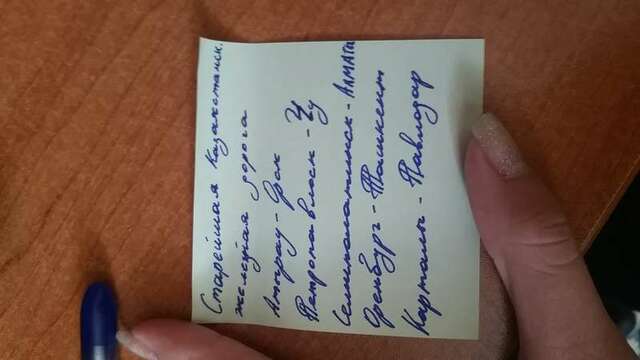 Старейшая Казахстанск.
железная дорога
Атырау - Орск
Петропавловск - Чу
Семипалатинск - Алматы
Оренбург - Ташкент
Карталы - Павлодар